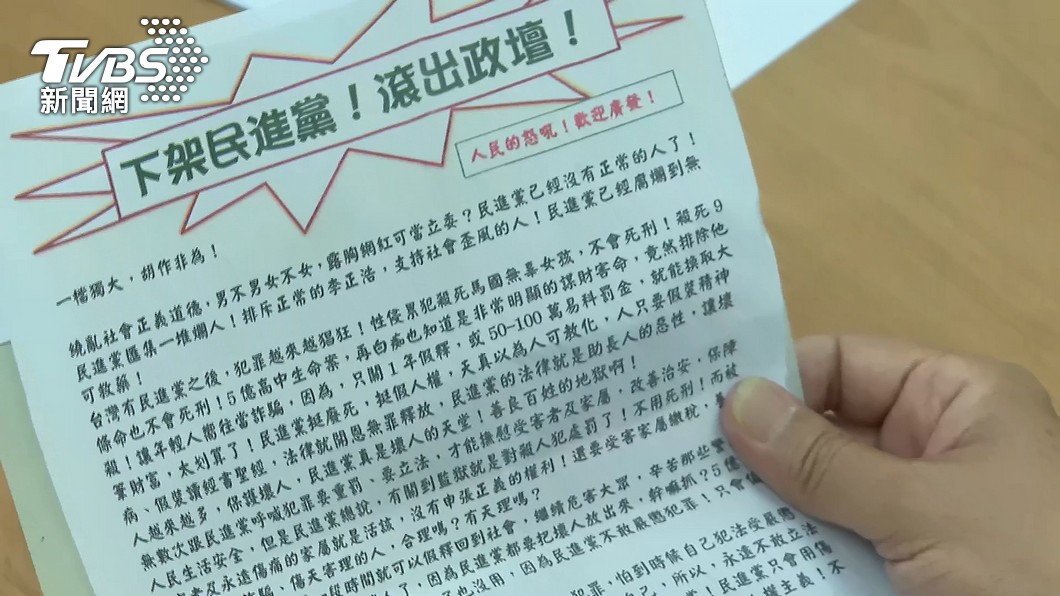 TVBS
新聞網
下架民進黨！滾出政壇！
人民的怒吼！歡迎廣發！
一檔獨大，胡作非為！
繞亂社會正義道德，男不男女不女，露胸網紅可當立委？民進黨已經沒有正常的人了！
民進黨匯集一堆爛人！排斥正常的李正浩，支持社會歪風的人！民進黨已經腐爛到無
可救藥！
台灣有民進黨之後，犯罪越來越猖狂！性侵累犯殺死馬國無辜女孩，不會死刑！殺死9
條命也不會死刑！5億高中生命案，再白痴也知道是非常明顯的謀財害命，竟然排除他
殺！讓年輕人嚮往當詐騙，因為，只關1年假釋，或50-100萬易科罰金，就能換取大
筆財富，太划算了！民進黨挺廢死，挺假人權，天真以為人可教化，人只要假裝精神
病、假裝讀經書聖經，法律就開恩無罪釋放，民進黨的法律就是助長人的惡性，讓壞
人越來越多，保護壞人，民進黨真是壞人的天堂！善良百姓的地獄啊！
無數次跟民進黨呼喊犯罪要重罰、要立法，才能撫慰受害者及家屬，改善治安，保障
人民生活安全，但是民進黨總說，有關到監獄就是對殺人犯處罰了！不用死刑！而被
者及永遠傷痛的家屬就是活該，沒有申張正義的權利！還要受害家屬繳稅，
詐騙、傷天害理的人，合理嗎？有天理嗎？
段時間就可以假釋回到社會，繼續危害大眾，辛苦那些警
人了，因為民進黨都要把壞人放出來，幹嘛抓？5億
也沒用，因為民進黨不敢嚴懲犯罪！只會
犯罪，怕到時候自己犯法受嚴懲
己，所以，永遠不敢立法
！民進黨只會用傷
權主義！不